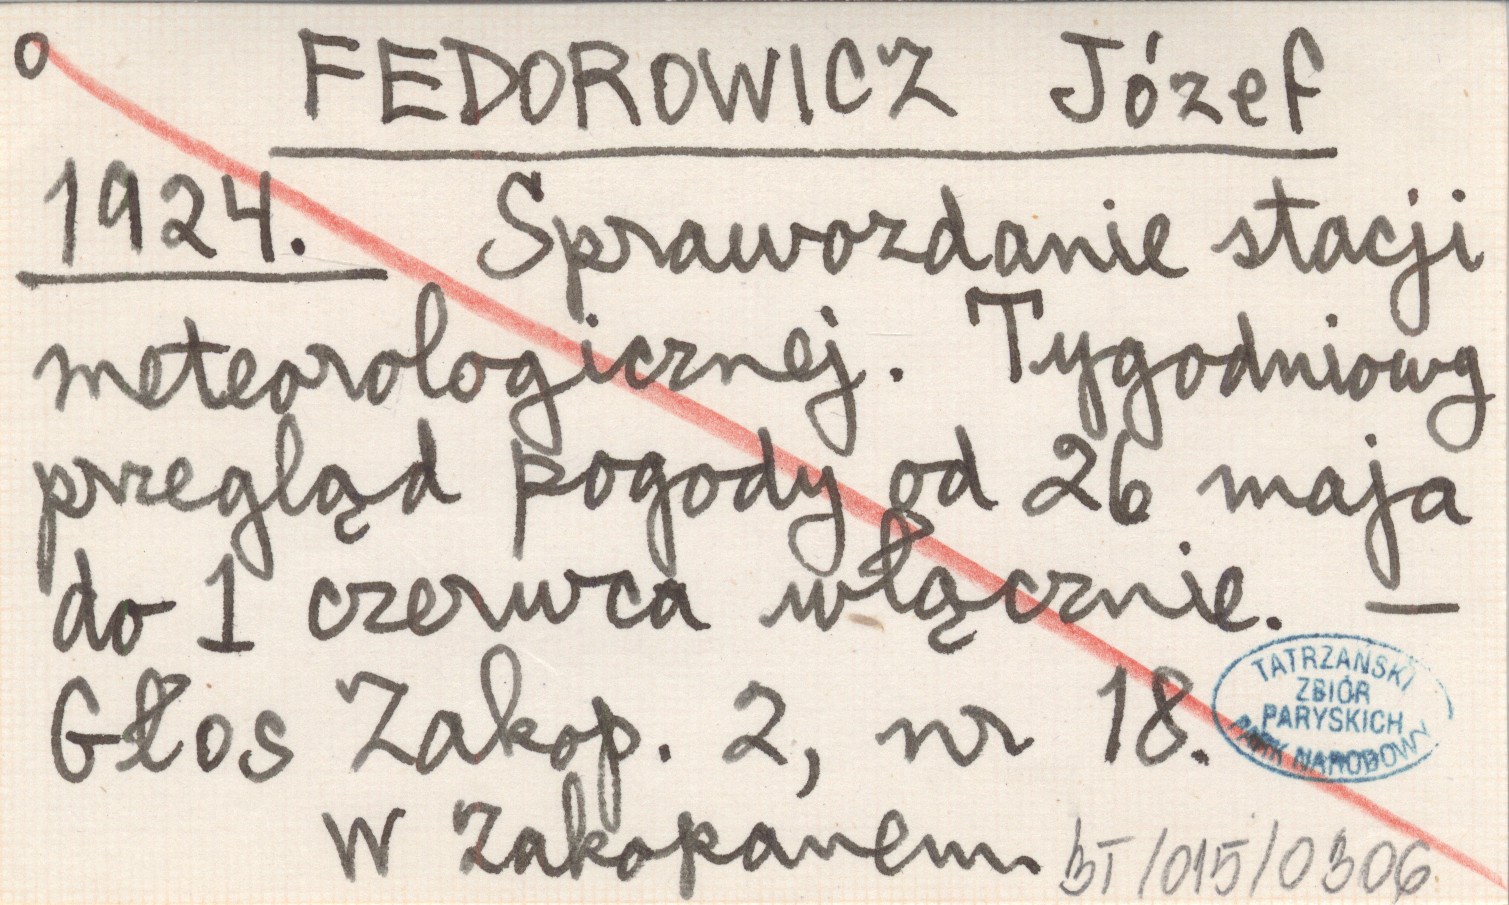 o FEDOROWICZ Józef
1924. Sprawozdanie stacji
meteorologicznej. Tygodniowy
przegląd pogody od 26 maja
do 1 czerwca włącznie. —
Głos Zakop. 2, nr 18.
W Zakopanem
TATRZAŃSKI
ZBIÓR
PARYSKICH
PARK NARODOWY
BT/015/0306